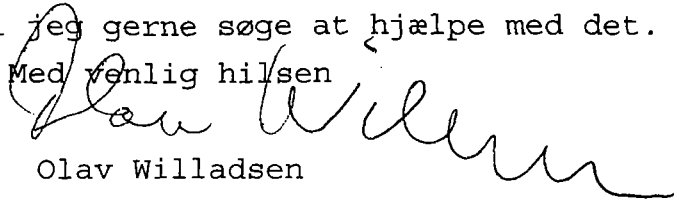 jeg gerne søge at hjælpe med det.
Med venlig hilsen
Olav Willadsen